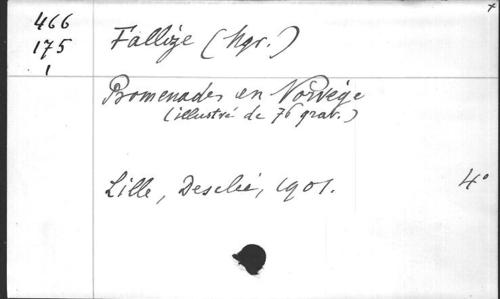 466
175
1
Fallize (Mgr.)
Promenades en Norvège
(illustré de 76 grav.)
Lille, Desclée, 1901.
4°